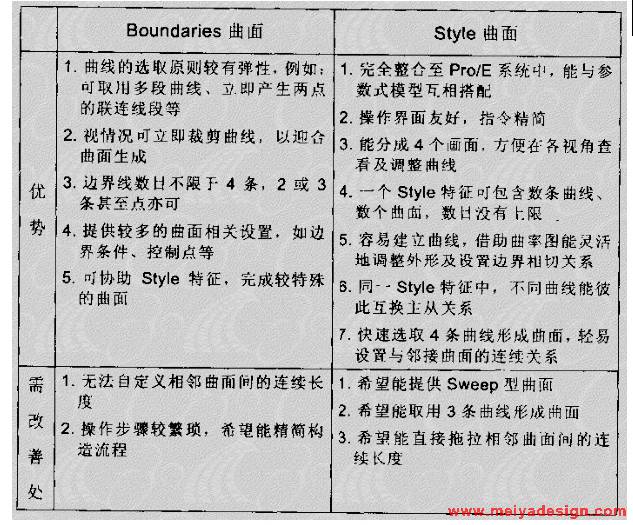 Boundaries 曲面
Style 曲面
优势
1. 曲线的选取原则较有弹性，例如：
可取用多段曲线、立即产生两点
的联连线段等
2. 视情况可立即裁剪曲线，以迎合
曲面生成
3. 边界线数目不限于 4 条，2 或 3
条甚至点亦可
4. 提供较多的曲面相关设置，如边
界条件、控制点等
5. 可协助 Style 特征，完成较特殊
的曲面
1. 完全整合至 Pro/E 系统中，能与参
数式模型互相搭配
2. 操作界面友好，指令精简
3. 能分成 4 个画面，方便在各视角查
看及调整曲线
4. 一个 Style 特征可包含数条曲线、
数个曲面，数目没有上限
5. 容易建立曲线，借助曲率图能灵活
地调整外形及设置边界相切关系
6. 同一 Style 特征中，不同曲线能彼
此互换主从关系
7. 快速选取 4 条曲线形成曲面，轻易
设置与邻接曲面的连续关系
需改善处
1. 无法自定义相邻曲面间的连续长
度
2. 操作步骤较繁琐，希望能精简构
造流程
1. 希望能提供 Sweep 型曲面
2. 希望能取用 3 条曲线形成曲面
3. 希望能直接拖拉相邻曲面间的连
续长度
www.meiyadesign.com